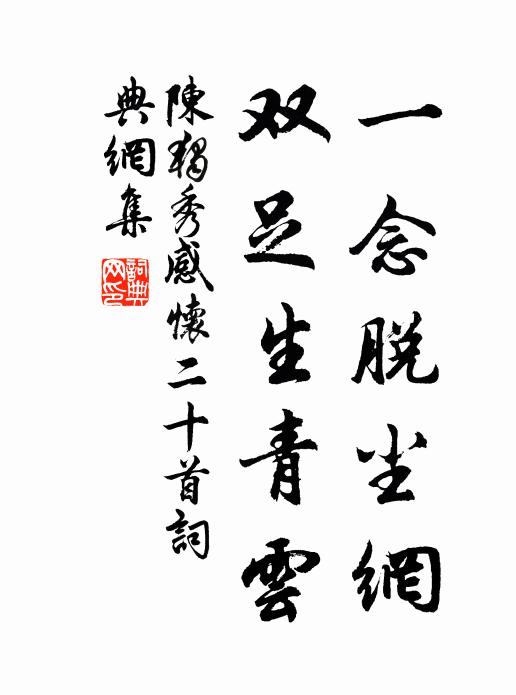 一念脱尘網
双足生青雲
陳獨秀感懷二十首詞
典網集
詞典
网印